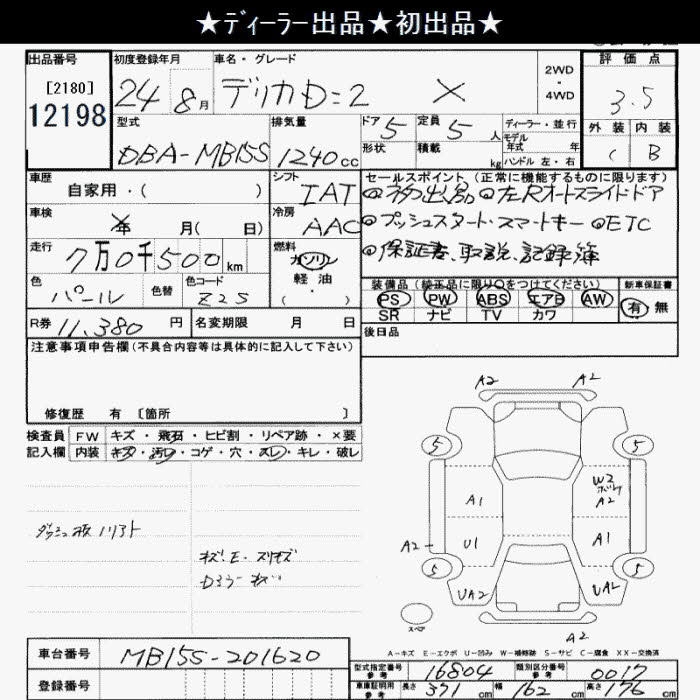 ★ディーラー出品★初出品★
出品番号 初度登録年月 車名・グレード 2WD・4WD 評価点
[2180] 12198 24 8月 デリカD:2 X 3.5
型式 排気量 ドア 定員 ディーラー・並行 外装 内装
DBA-MB15S 1240cc 5 5人 モデル年式 年 C B
形状 積載 kg ハンドル 左・右
車歴 シフト セールスポイント(正常に機能するものに限ります)
自家用・( ) IAT ◎初出品 ◎左Rオートスライドドア
車検 年 月( 日) 冷房 AAC ◎プッシュスタート・スマートキー ◎ETC
走行 7万0千500km 燃料 ガソリン 軽油 ( ・ ) ◎保証書、取説、記録簿
色 パール 色替 色コード Z2S 装備品(純正品に限り○をつけてください) 新車保証書
PS PW ABS エアB AW 有 無
SR ナビ TV カワ
R券 11,380円 名変期限 月 日 後日品
注意事項申告欄(不具合内容等は具体的に記入して下さい)
修復歴 有 [箇所 ]
検査員記入欄 FW キズ・飛石・ヒビ割・リペア跡・×要
内装 キズ・汚レ・コゲ・穴・スレ・キレ・破レ
A2 A2
5 5
A1 W2 A2
A2 U1 A1
5 5
UA2 UA2
スペア A2
A-キズ E-エクボ U-凹み W-補修跡 S-サビ C-腐食 XX-交換済
車台番号 MB15S-201620
型式指定番号 参考 16804 類別区分番号 参考 0017
登録番号 車庫証明用 参考 長さ 371cm 幅 162cm 高さ 176cm